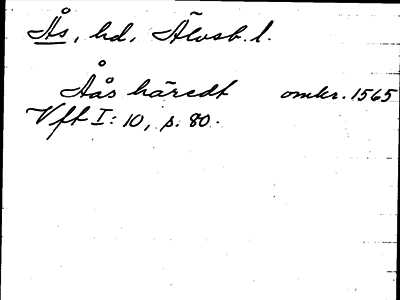 Ås, hd, Älvsb. l.
Åås häredt omkr. 1565
Vft I: 10, s. 80.